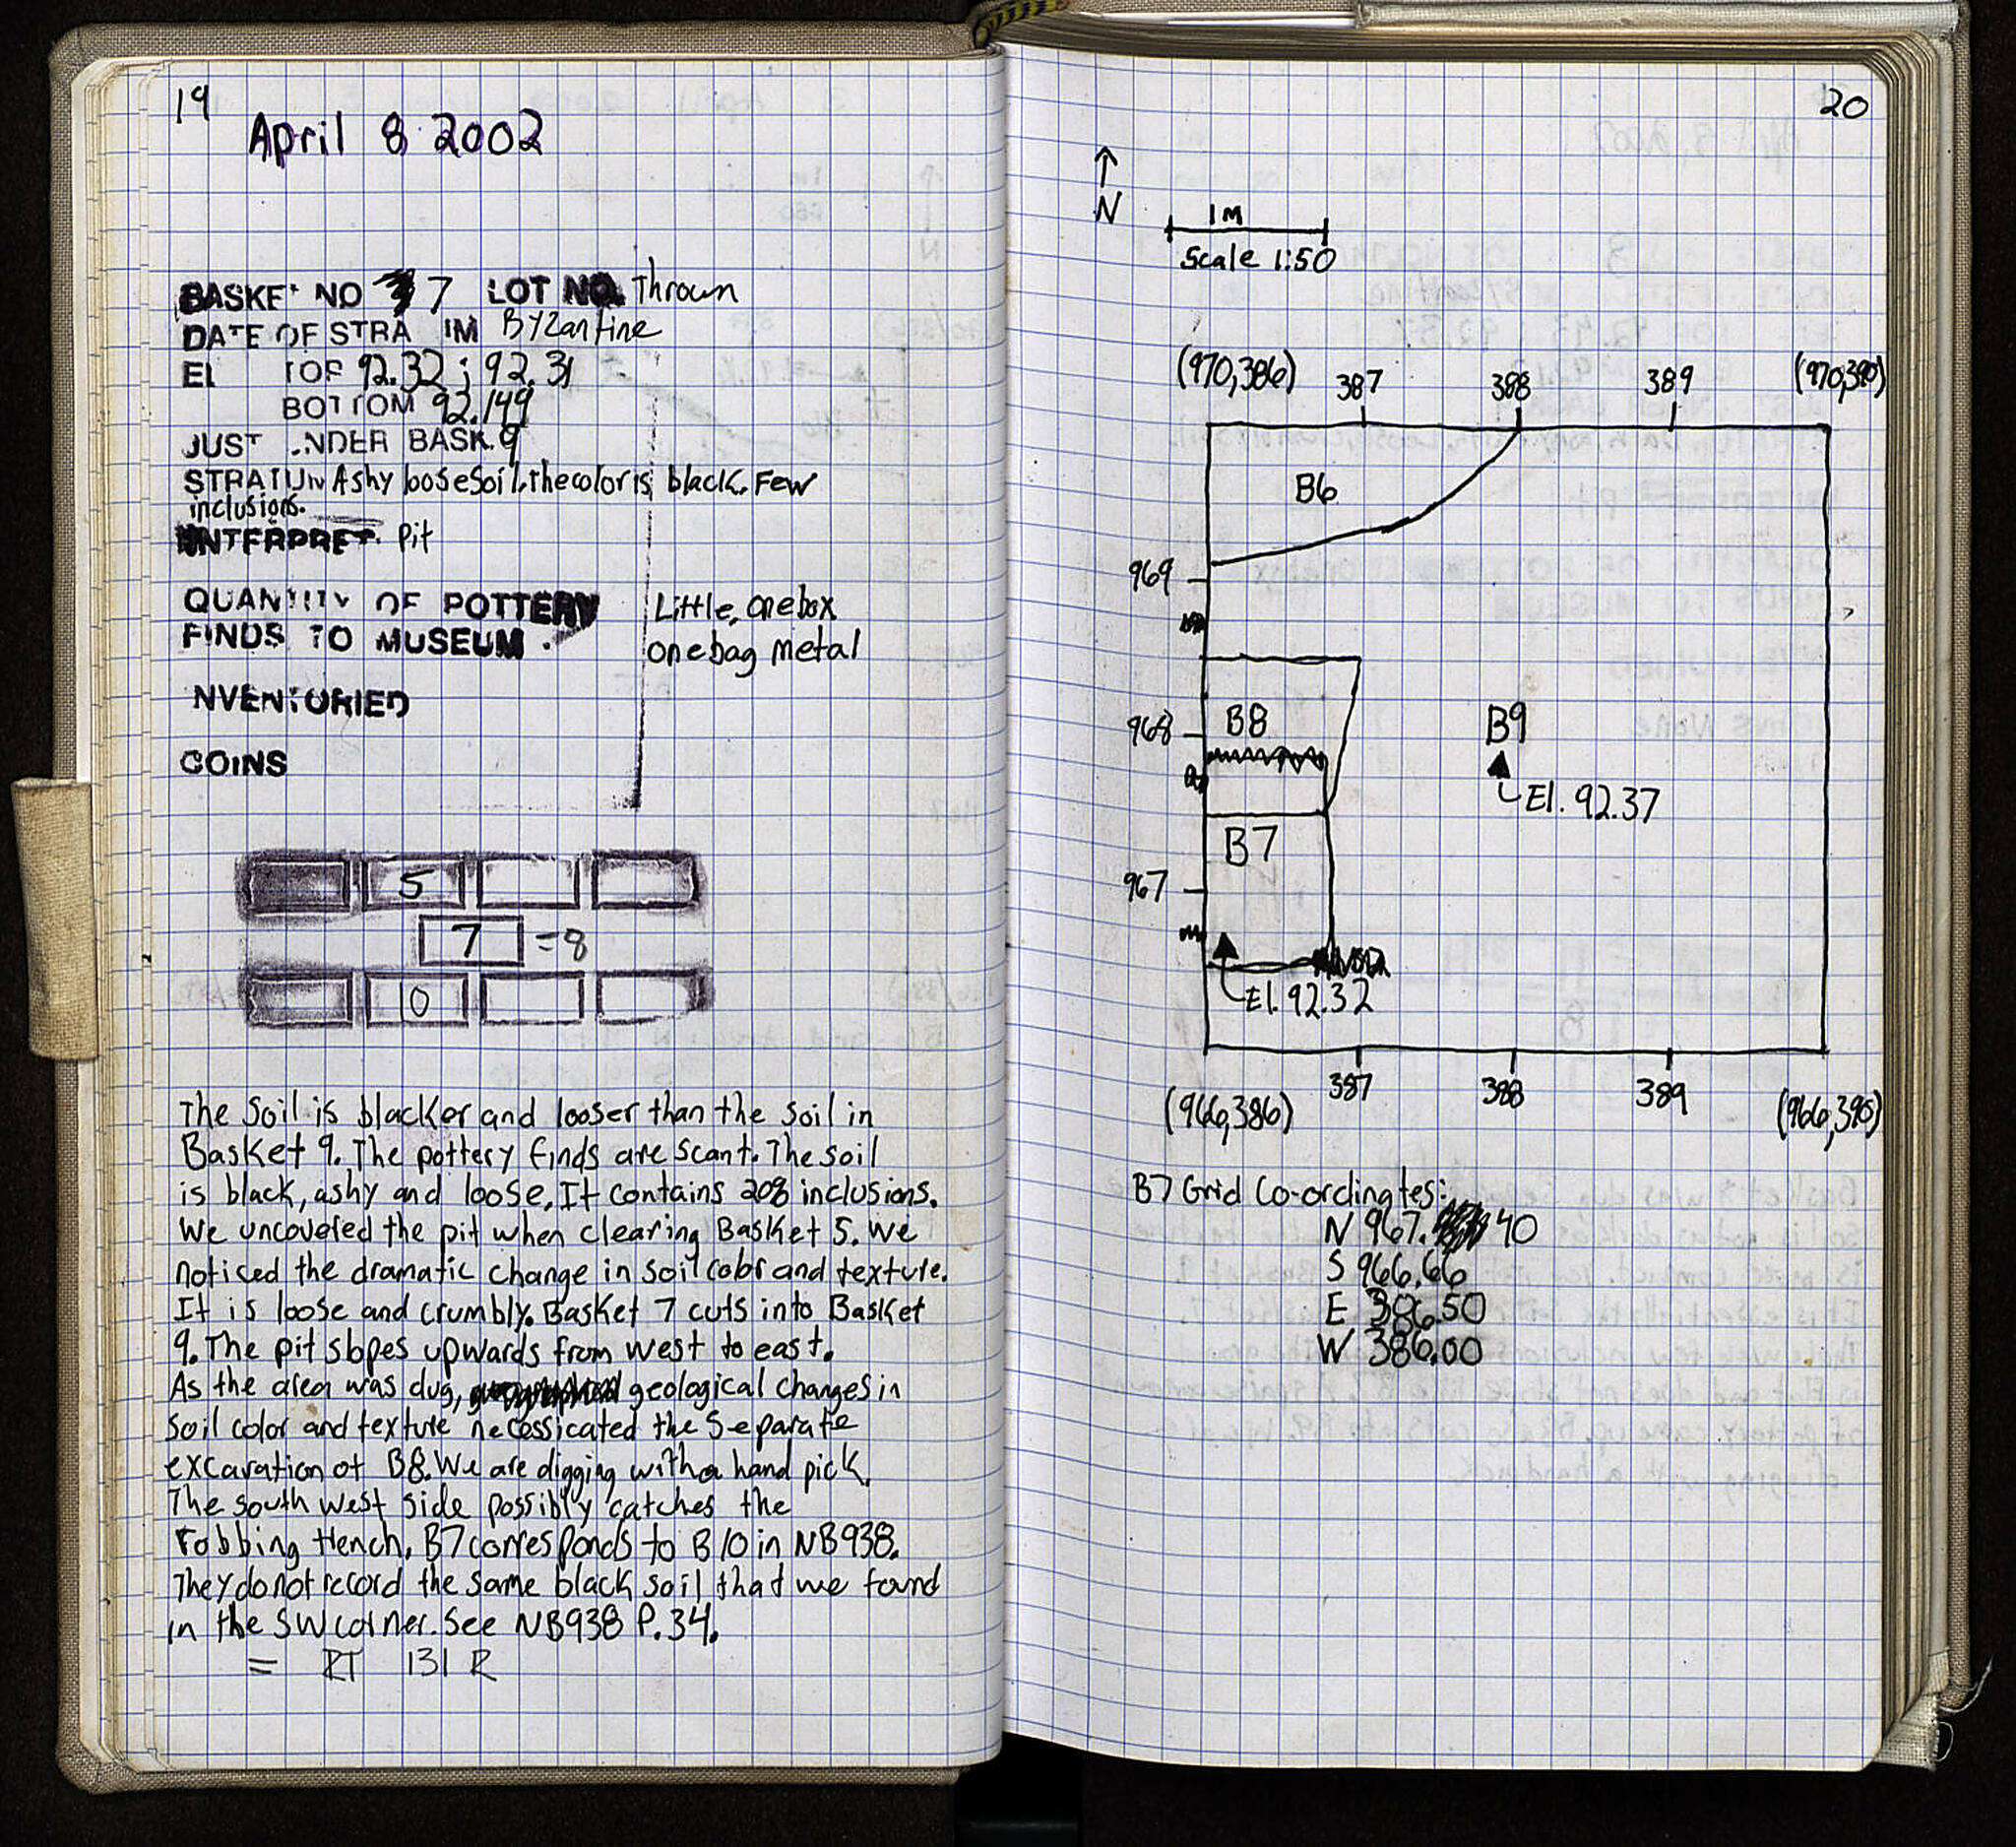 19
April 8 2002
BASKET NO 7 LOT NO. Thrown
DATE OF STRA IM Byzantine
EL TOP 92.32 ; 92.31
BOTTOM 92.149
JUST UNDER BASK. 9
STRATUM Ashy loose soil, the color is black. Few
inclusions.
INTERPRET. Pit
QUANTITY OF POTTERY Little, one box
FINDS TO MUSEUM . one bag metal
NVENTORIED
COINS
5
7 =8
10
The soil is blacker and looser than the soil in
Basket 9. The pottery finds are scant. The soil
is black, ashy and loose. It contains 20% inclusions.
We uncovered the pit when clearing Basket 5. We
noticed the dramatic change in soil color and texture.
It is loose and crumbly. Basket 7 cuts into Basket
9. The pit slopes upwards from west to east.
As the area was dug, geological changes in
soil color and texture necessicated the separate
excavation of B8. We are digging with a hand pick.
The south west side possibly catches the
robbing trench. B7 corresponds to B10 in NB938.
They do not record the same black soil that we found
in the SW corner. See NB938 P.34.
= RT 131 R
20
N
1M
Scale 1:50
(970,386) 387 388 389 (970,390)
B6
969
968 B8 B9
El. 92.37
B7
967
El. 92.32
387 388 389
(966,386) (966,390)
B7 Grid Co-ordinates:
N 967.40
S 966.66
E 386.50
W 386.00